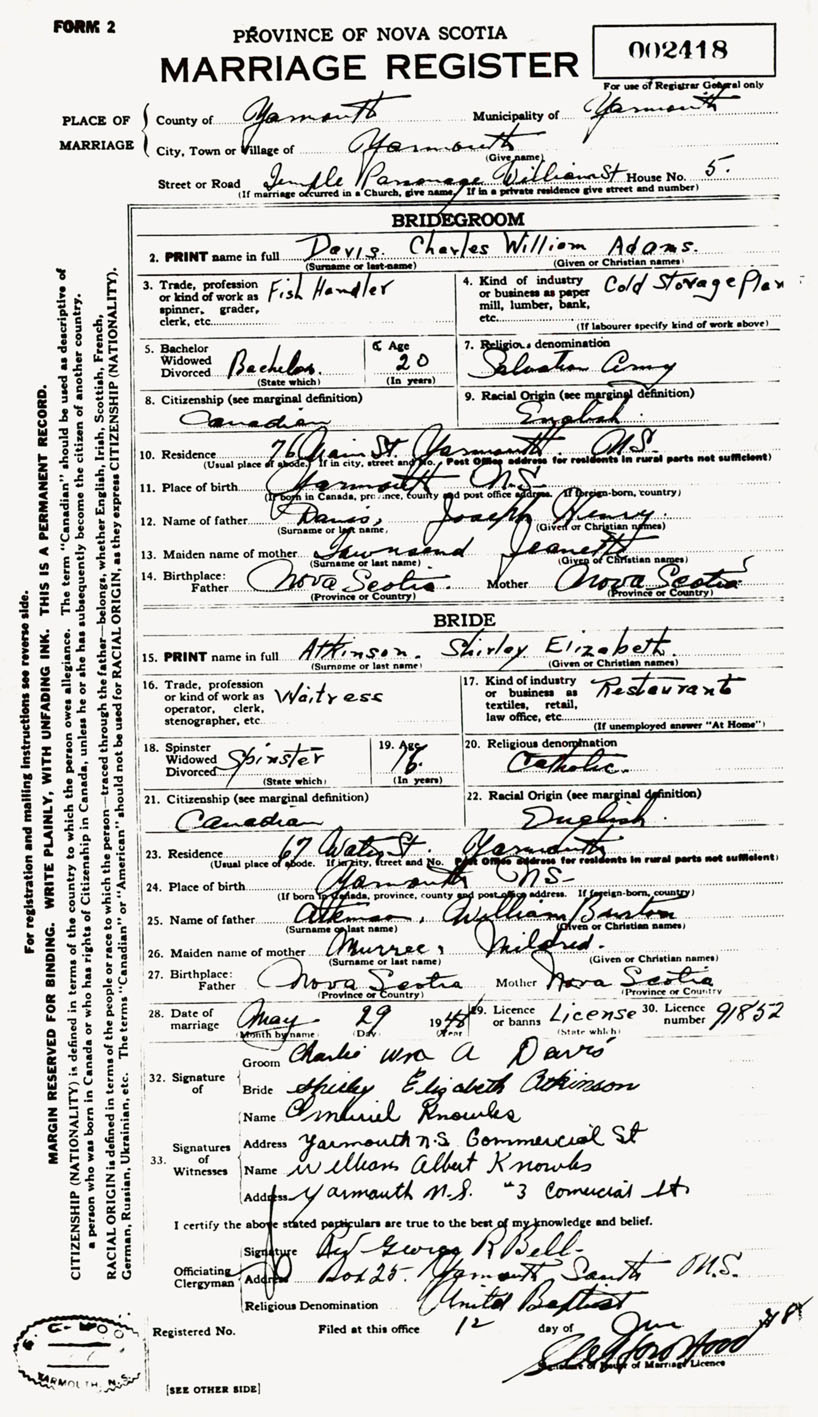 FORM 2
PROVINCE OF NOVA SCOTIA
MARRIAGE REGISTER
002418
For use of Registrar General only
PLACE OF MARRIAGE
County of Yarmouth Municipality of Yarmouth
City, Town or Village of Yarmouth
(Give name)
Street or Road Temple Parsonage William St House No. 5.
(If marriage occurred in a Church, give name. If in a private residence give street and number)
BRIDEGROOM
2. PRINT name in full Davis. Charles William Adams.
(Surname or last name) (Given or Christian names)
3. Trade, profession or kind of work as spinner, grader, clerk, etc. Fish Handler
4. Kind of industry or business as paper mill, lumber, bank, etc. Cold Storage Plan
(If labourer specify kind of work above)
5. Bachelor Widowed Divorced Bachelor
(State which)
6. Age 20
(In years)
7. Religious denomination
Salvation Army
8. Citizenship (see marginal definition)
Canadian
9. Racial Origin (see marginal definition)
English
10. Residence 76 Main St. Yarmouth. N.S.
(Usual place of abode. If in city, street and No. Post Office address for residents in rural parts not sufficient)
11. Place of birth Yarmouth N.S.
(If born in Canada, province, county and post office address. If foreign-born, country)
12. Name of father Davis, Joseph Henry.
(Surname or last name) (Given or Christian names)
13. Maiden name of mother Townsend Jeanette
(Surname or last name) (Given or Christian names)
14. Birthplace: Father Nova Scotia. Mother Nova Scotia
(Province or Country) (Province or Country)
BRIDE
15. PRINT name in full Atkinson. Shirley Elizabeth.
(Surname or last name) (Given or Christian names)
16. Trade, profession or kind of work as operator, clerk, stenographer, etc. Waitress
17. Kind of industry or business as textiles, retail, law office, etc. Restaurant
(If unemployed answer "At Home")
18. Spinster Widowed Divorced Spinster
(State which)
19. Age 16.
(In years)
20. Religious denomination
Catholic.
21. Citizenship (see marginal definition)
Canadian
22. Racial Origin (see marginal definition)
English.
23. Residence 67 Water St. Yarmouth
(Usual place of abode. If in city, street and No. Post Office address for residents in rural parts not sufficient)
24. Place of birth Yarmouth NS-
(If born in Canada, province, county and post office address. If foreign-born, country)
25. Name of father Atkinson, William Burton
(Surname or last name) (Given or Christian names)
26. Maiden name of mother Mildred.
(Surname or last name) (Given or Christian names)
27. Birthplace: Father Nova Scotia Mother Nova Scotia
(Province or Country) (Province or Country)
28. Date of marriage May 29 1948
(Month by name) (Day) Year
29. Licence or banns License
(State which)
30. Licence number 91852
32. Signature of
Groom Charlie Wm A Davis
Bride Shirley Elizabeth Atkinson
33. Signatures of Witnesses
Name Muriel Knowles
Address Yarmouth N.S Commercial St
Name William Albert Knowles
Address Yarmouth N.S. "3 Comercial St
I certify the above stated particulars are true to the best of my knowledge and belief.
Officiating Clergyman
Signature Rev George R Bell-
Address Box 25. Yarmouth South N.S.
Religious Denomination United Baptist
Registered No. Filed at this office 12 day of June 48
Signature of Issuer of Marriage Licence
[SEE OTHER SIDE]
YARMOUTH, N.S.
For registration and mailing instructions see reverse side.
MARGIN RESERVED FOR BINDING. WRITE PLAINLY, WITH UNFADING INK. THIS IS A PERMANENT RECORD.
CITIZENSHIP (NATIONALITY) is defined in terms of the country to which the person owes allegiance. The term "Canadian" should be used as descriptive of
a person who was born in Canada or who has rights of Citizenship in Canada, unless he or she has subsequently become the citizen of another country.
RACIAL ORIGIN is defined in terms of the people or race to which the person—traced through the father—belongs, whether English, Irish, Scottish, French,
German, Russian, Ukrainian, etc. The terms "Canadian" or "American" should not be used for RACIAL ORIGIN, as they express CITIZENSHIP (NATIONALITY).